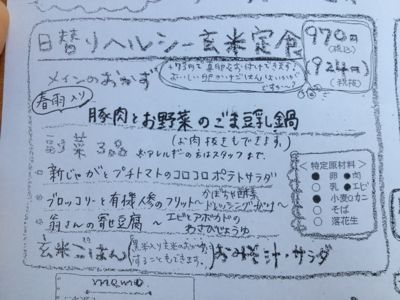 日替りヘルシー玄米定食
970円
(税込)
(924円
(税抜)
メインのおかず
春雨入り
豚肉とお野菜のごま豆乳鍋
(お肉抜きもできます。)
副菜 3品
※アレルギーの方はスタッフまで。
新じゃがとプチトマトのコロコロポテトサラダ
ブロッコリーと有機人参のフリット〜かぼちゃ酵素ドレッシングがけ〜
翁さんの寄せ豆腐 〜エビとアボカドのわさびじょうゆ
玄米ごはん
おみそ汁・サラダ
<特定原材料>
● 卵 ● 肉
○ 乳 ● エビ
● 小麦 ○ カニ
○ そば
○ 落花生
memo